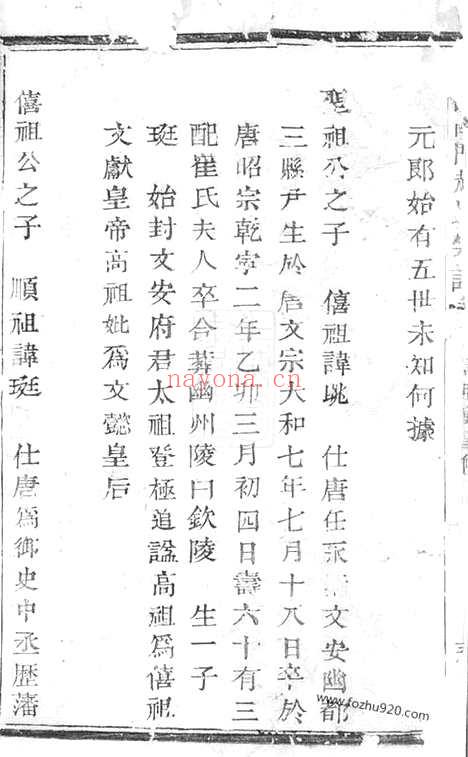 元郎始有五世未知何據
聖祖公之子 僖祖諱朓 仕唐任永 文安幽都
三縣尹生於唐文宗大和七年七月十八日卒於
唐昭宗乾寧二年乙卯三月初四日壽六十有三
配崔氏夫人卒合葬幽州陵曰欽陵 生一子
珽 始封文安府君太祖登極追諡高祖為僖祖
文獻皇帝高祖妣為文懿皇后
僖祖公之子 順祖諱珽 仕唐為御史中丞歷藩
nayona.cn
www.fozhu920.com